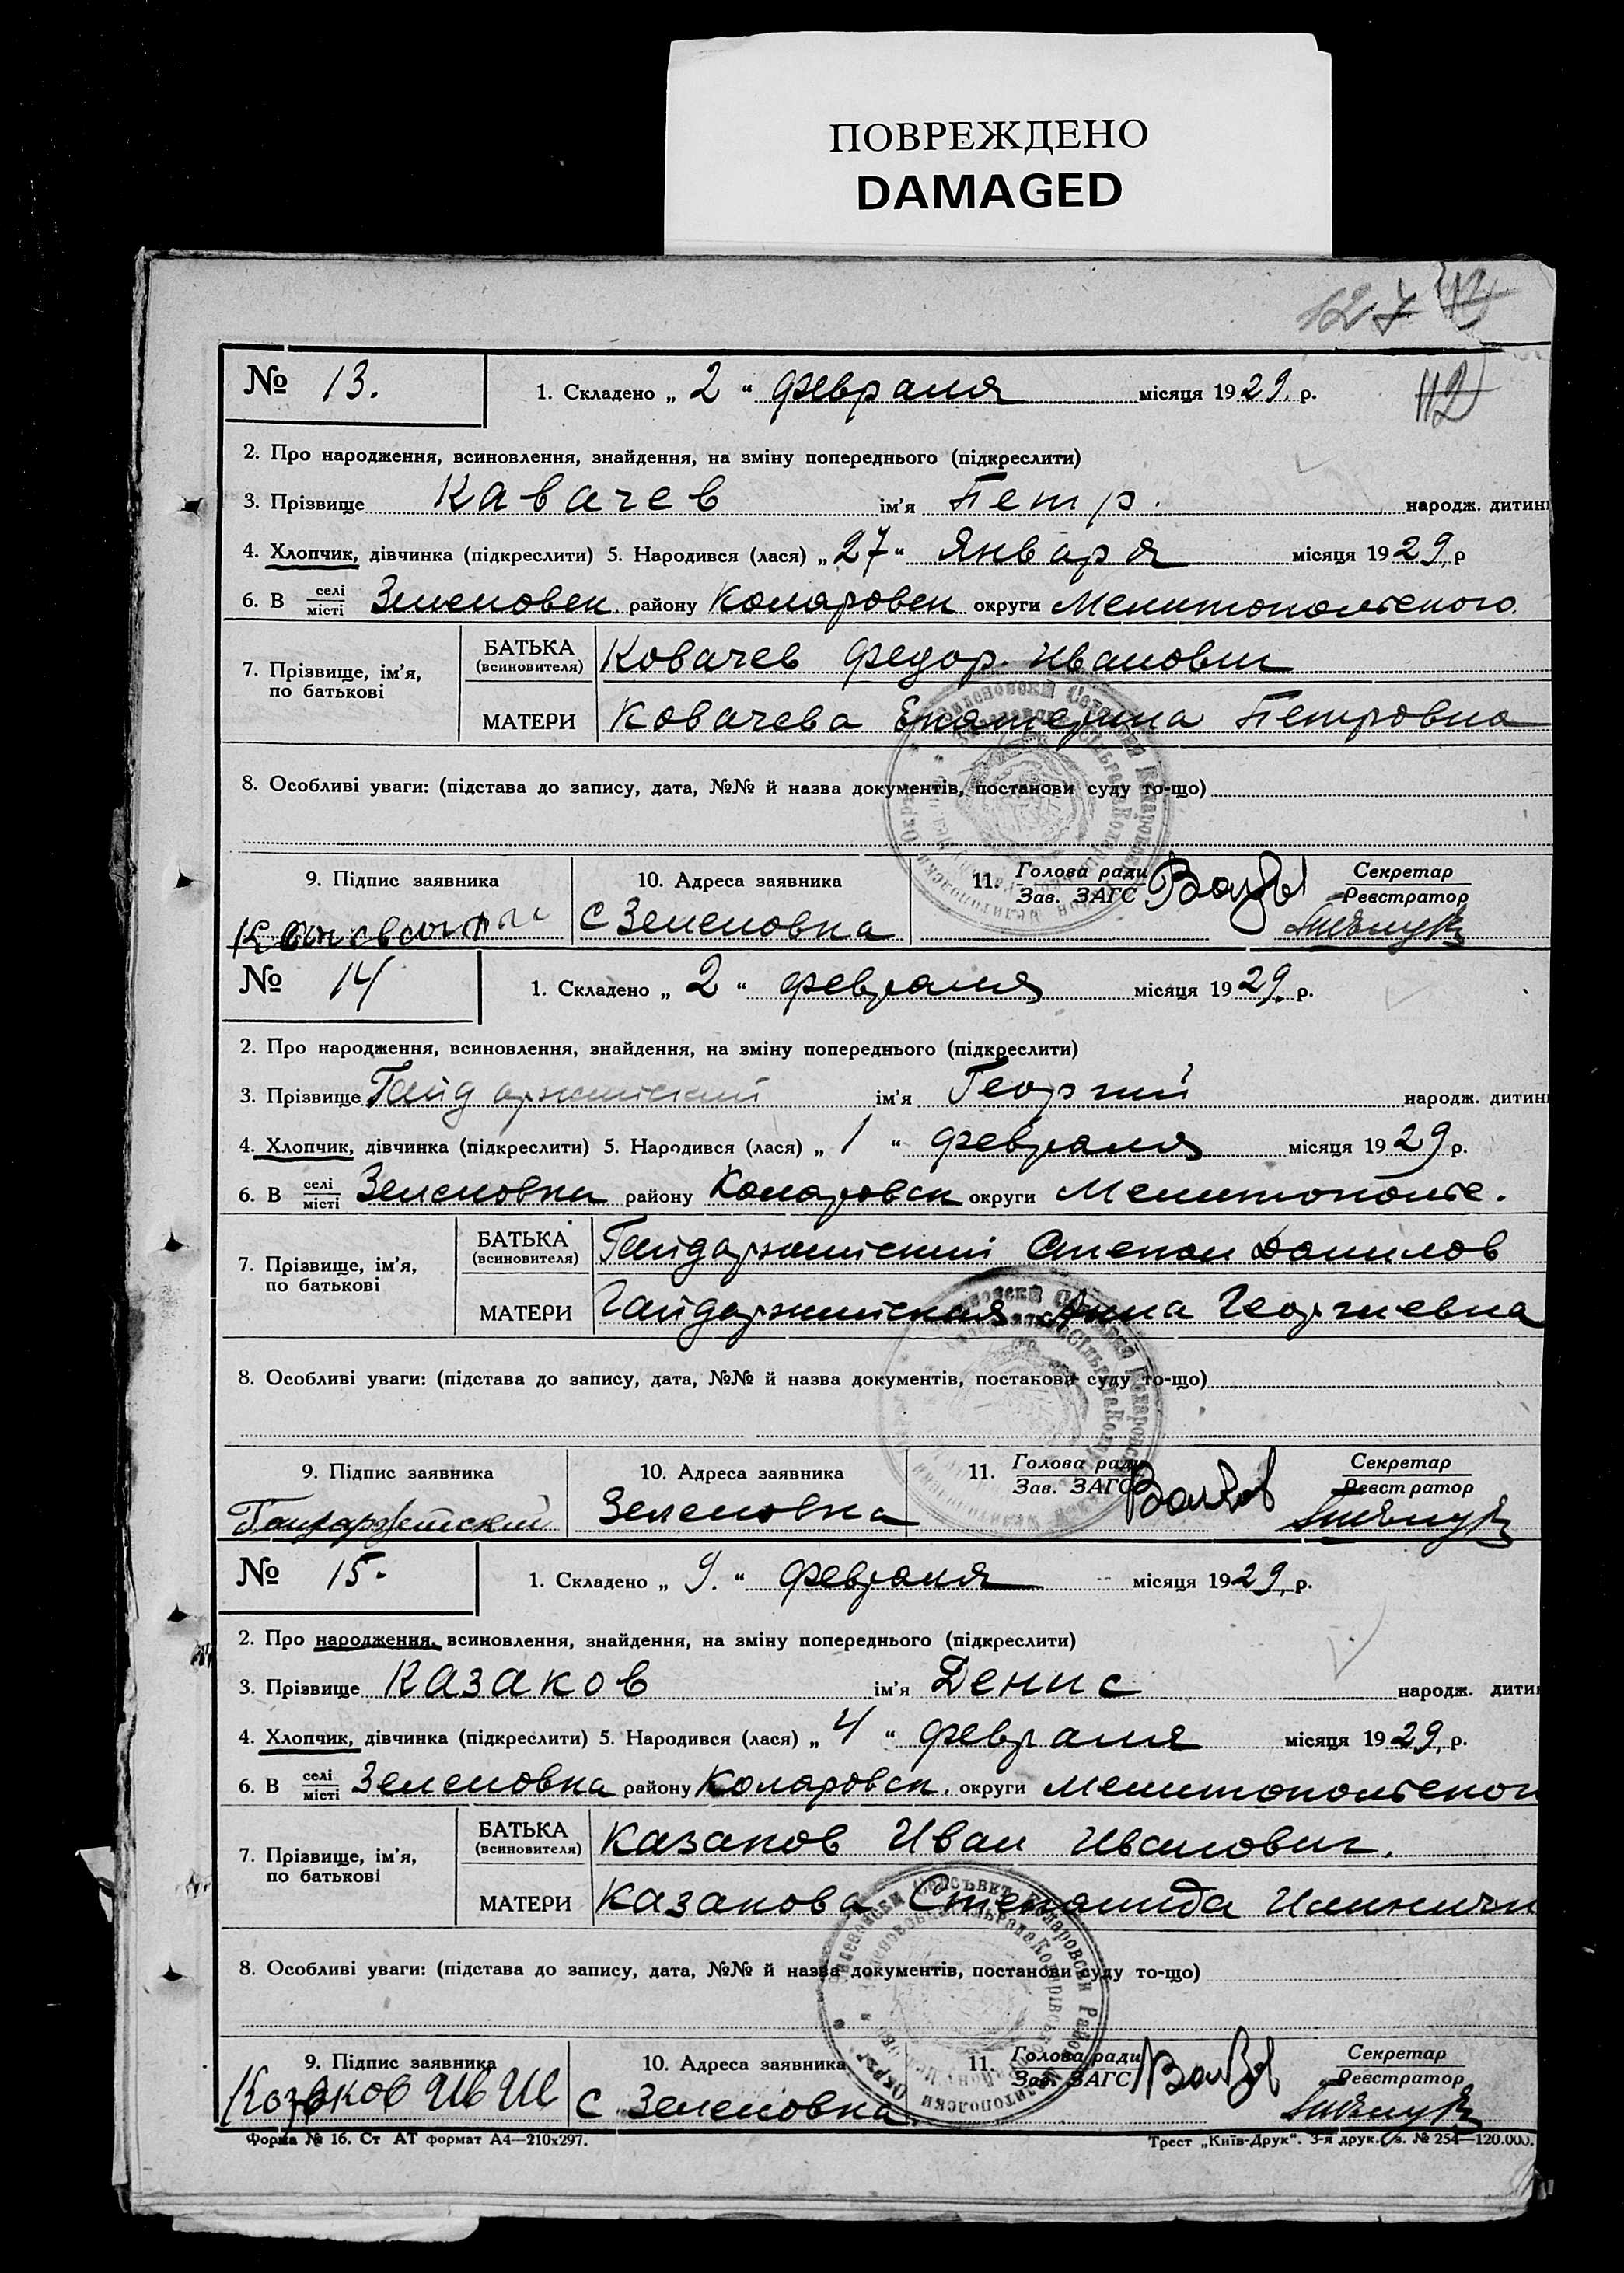 ПОВРЕЖДЕНО
DAMAGED
127
112
№ 13. 1. Складено „ 2 “ февраля місяця 1929, р.
2. Про народження, всиновлення, знайдення, на зміну попереднього (підкреслити)
3. Прізвище Кавачев ім'я Петр. народж. дитин
4. Хлопчик, дівчинка (підкреслити) 5. Народився (лася) „ 27 “ Января місяця 1929, р
6. В селі/місті Зеленовск району Коларовск округи Мелитопольского.
7. Прізвище, ім'я, по батькові БАТЬКА (всиновителя) Ковачев Федор Иванович
МАТЕРИ Ковачева Екатерина Петровна
8. Особливі уваги: (підстава до запису, дата, №№ й назва документів, постанови суду то-що)
9. Підпис заявника 10. Адреса заявника 11. Голова ради/Зав. ЗАГС Секретар/Реєстратор
С Зеленовка
№ 14 1. Складено „ 2 “ февраля місяця 1929, р.
2. Про народження, всиновлення, знайдення, на зміну попереднього (підкреслити)
3. Прізвище Гайдаржийский ім'я Георгий народж. дитин
4. Хлопчик, дівчинка (підкреслити) 5. Народився (лася) „ 1 “ февраля місяця 1929 р.
6. В селі/місті Зеленовка району Коларовск округи Мелитопольс.
7. Прізвище, ім'я, по батькові БАТЬКА (всиновителя) Гайдаржийский Степан Данилов
МАТЕРИ Гайдаржийская Анна Георгиевна
8. Особливі уваги: (підстава до запису, дата, №№ й назва документів, постанови суду то-що)
9. Підпис заявника 10. Адреса заявника 11. Голова ради/Зав. ЗАГС Секретар/Реєстратор
Гайдаржийский Зеленовка Валков
№ 15. 1. Складено „ 9. “ февраля місяця 1929, р.
2. Про народження, всиновлення, знайдення, на зміну попереднього (підкреслити)
3. Прізвище Казаков ім'я Денис народж. дити
4. Хлопчик, дівчинка (підкреслити) 5. Народився (лася) „ 4 “ февраля місяця 1929, р.
6. В селі/місті Зеленовка району Коларовск. округи Мелитопольског
7. Прізвище, ім'я, по батькові БАТЬКА (всиновителя) Казаков Иван Иванович.
МАТЕРИ Казакова Степанида
8. Особливі уваги: (підстава до запису, дата, №№ й назва документів, постанови суду то-що)
9. Підпис заявника 10. Адреса заявника 11. Голова ради/Зав. ЗАГС Секретар/Реєстратор
Козаков Ив Ив С Зеленовка Валков
Форма № 16. Ст АТ формат А4—210x297. Трест „Київ-Друк“. 3-я друк. з. № 254—120.000.